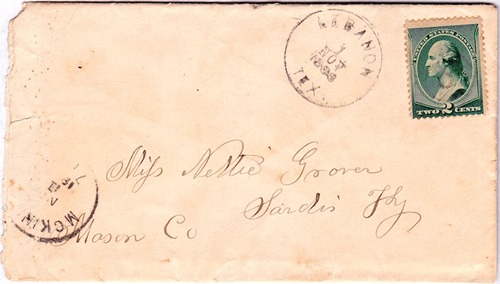 LEBANON
1
NOV
1888
TEX.
UNITED STATES POSTAGE
2
TWO CENTS
Miss Nettie Grover
Sardis Ky
Mason Co
MCKIN